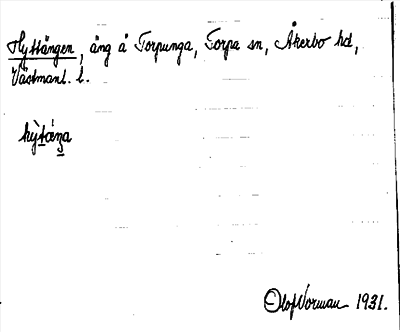 Hyttängen, äng å Torpunga, Torpa sn, Åkerbo hd,
Västmanl. l.
Olof Vorman 1931.